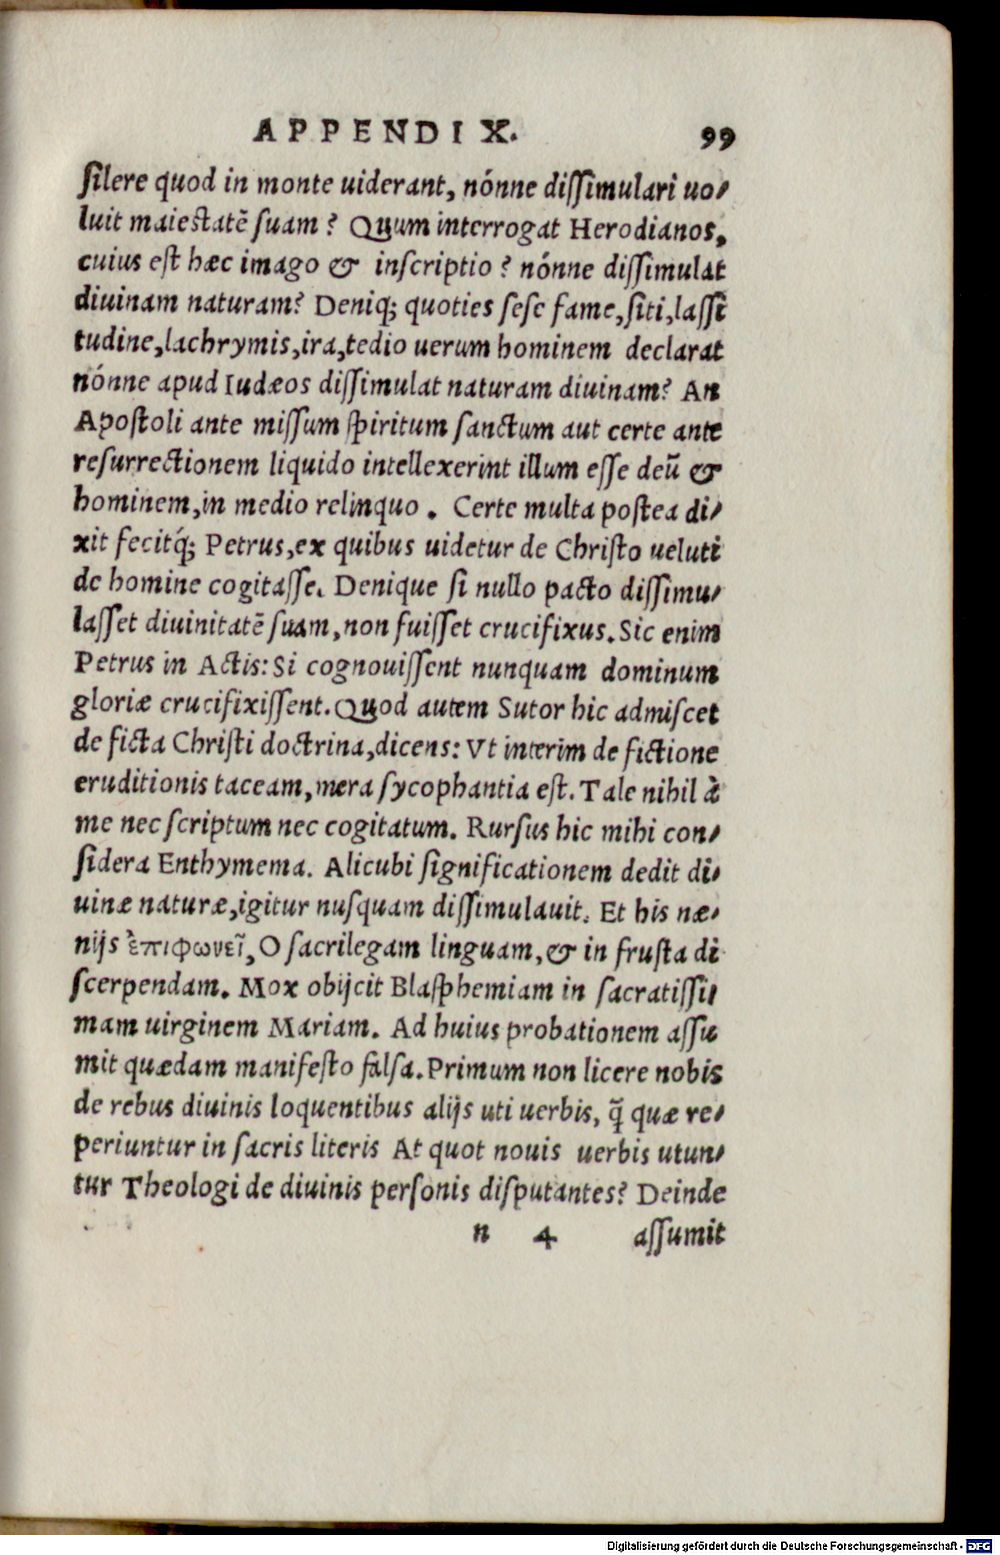 APPENDIX. 99
silere quod in monte uiderant, nónne dissimulari uo-
luit maiestatē suam? Quum interrogat Herodianos,
cuius est hæc imago & inscriptio? nónne dissimulat
diuinam naturam? Deniq; quoties sese fame, siti, lassi
tudine, lachrymis, ira, tedio uerum hominem declarat
nónne apud Iudæos dissimulat naturam diuinam? An
Apostoli ante missum spiritum sanctum aut certe ante
resurrectionem liquido intellexerint illum esse deū &
hominem, in medio relinquo. Certe multa postea di-
xit fecitq́; Petrus, ex quibus uidetur de Christo ueluti
de homine cogitasse. Denique si nullo pacto dissimu-
lasset diuinitatē suam, non fuisset crucifixus. Sic enim
Petrus in Actis: Si cognouissent nunquam dominum
gloriæ crucifixissent. Quod autem Sutor hic admiscet
de ficta Christi doctrina, dicens: Vt interim de fictione
eruditionis taceam, mera sycophantia est. Tale nihil à
me nec scriptum nec cogitatum. Rursus hic mihi con-
sidera Enthymema. Alicubi significationem dedit di-
uinæ naturæ, igitur nusquam dissimulauit. Et his næ-
nijs ἐπιφωνεῖ, O sacrilegam linguam, & in frusta di
scerpendam. Mox obijcit Blasphemiam in sacratissi-
mam uirginem Mariam. Ad huius probationem assu
mit quædam manifesto falsa. Primum non licere nobis
de rebus diuinis loquentibus alijs uti uerbis, q̄ quæ re-
periuntur in sacris literis At quot nouis uerbis utun-
tur Theologi de diuinis personis disputantes? Deinde
n 4 assumit
Digitalisierung gefördert durch die Deutsche Forschungsgemeinschaft - DFG